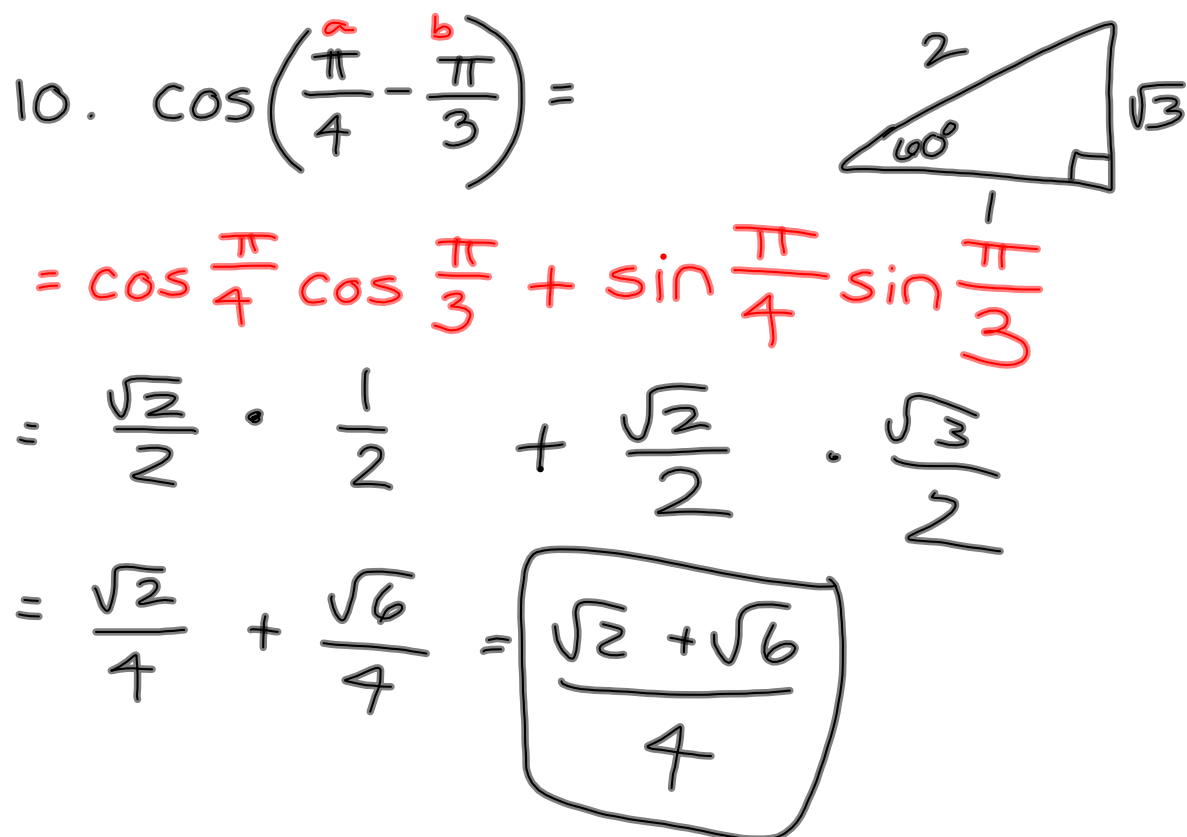 a b
10. cos(π/4 - π/3) =
2
60°
√3
1
= cos π/4 cos π/3 + sin π/4 sin π/3
= √2/2 • 1/2 + √2/2 • √3/2
= √2/4 + √6/4 = (√2 + √6)/4